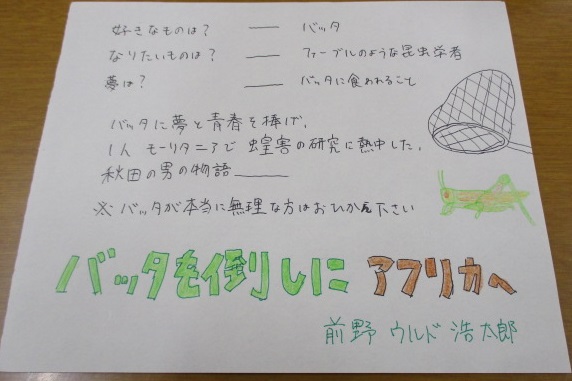 好きなものは? —— バッタ
なりたいものは? —— ファーブルのような昆虫学者
夢は? —— バッタに食われること
バッタに夢と青春を捧げ、
1人 モーリタニアで 蝗害の研究に熱中した、
秋田の男の物語 ——
※ バッタが本当に無理な方はおひかえ下さい
バッタを倒しに アフリカへ
前野 ウルド 浩太郎